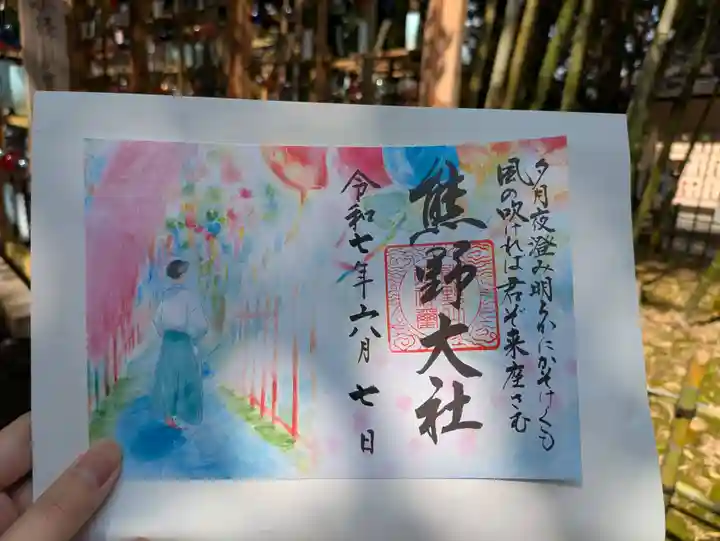 夕月夜澄み明らかにかそけくも
風の吹ければ君ぞ来座さむ
熊野大社
令和七年六八月七日